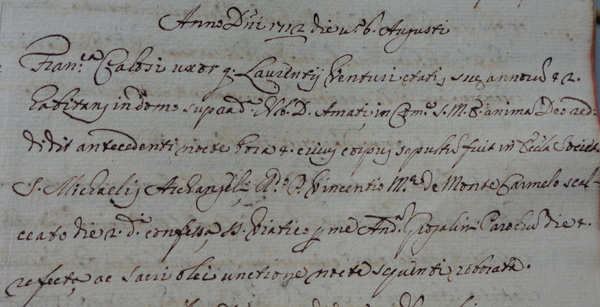 Anno Dni 1712 die v.o 6. Augusti
Fran.ca Calosi uxor q. Laurentij Venturi etatis suę annorũ 82.
habitans in domo D. Amati, in Com.e S. M. E. anima Deo red-
didit antecedenti nocte hora 4. cuius corpus sepultũ fuit in Eccła Societ.
S. Michaelis Archangeli P. Vincentio M.a de Monte Carmelo scal-
ceato die 2. d.i confessa, SS. Viatico p me And. Parochũ die
refecta, ac sacri olei unctione nocte sequenti roborata.